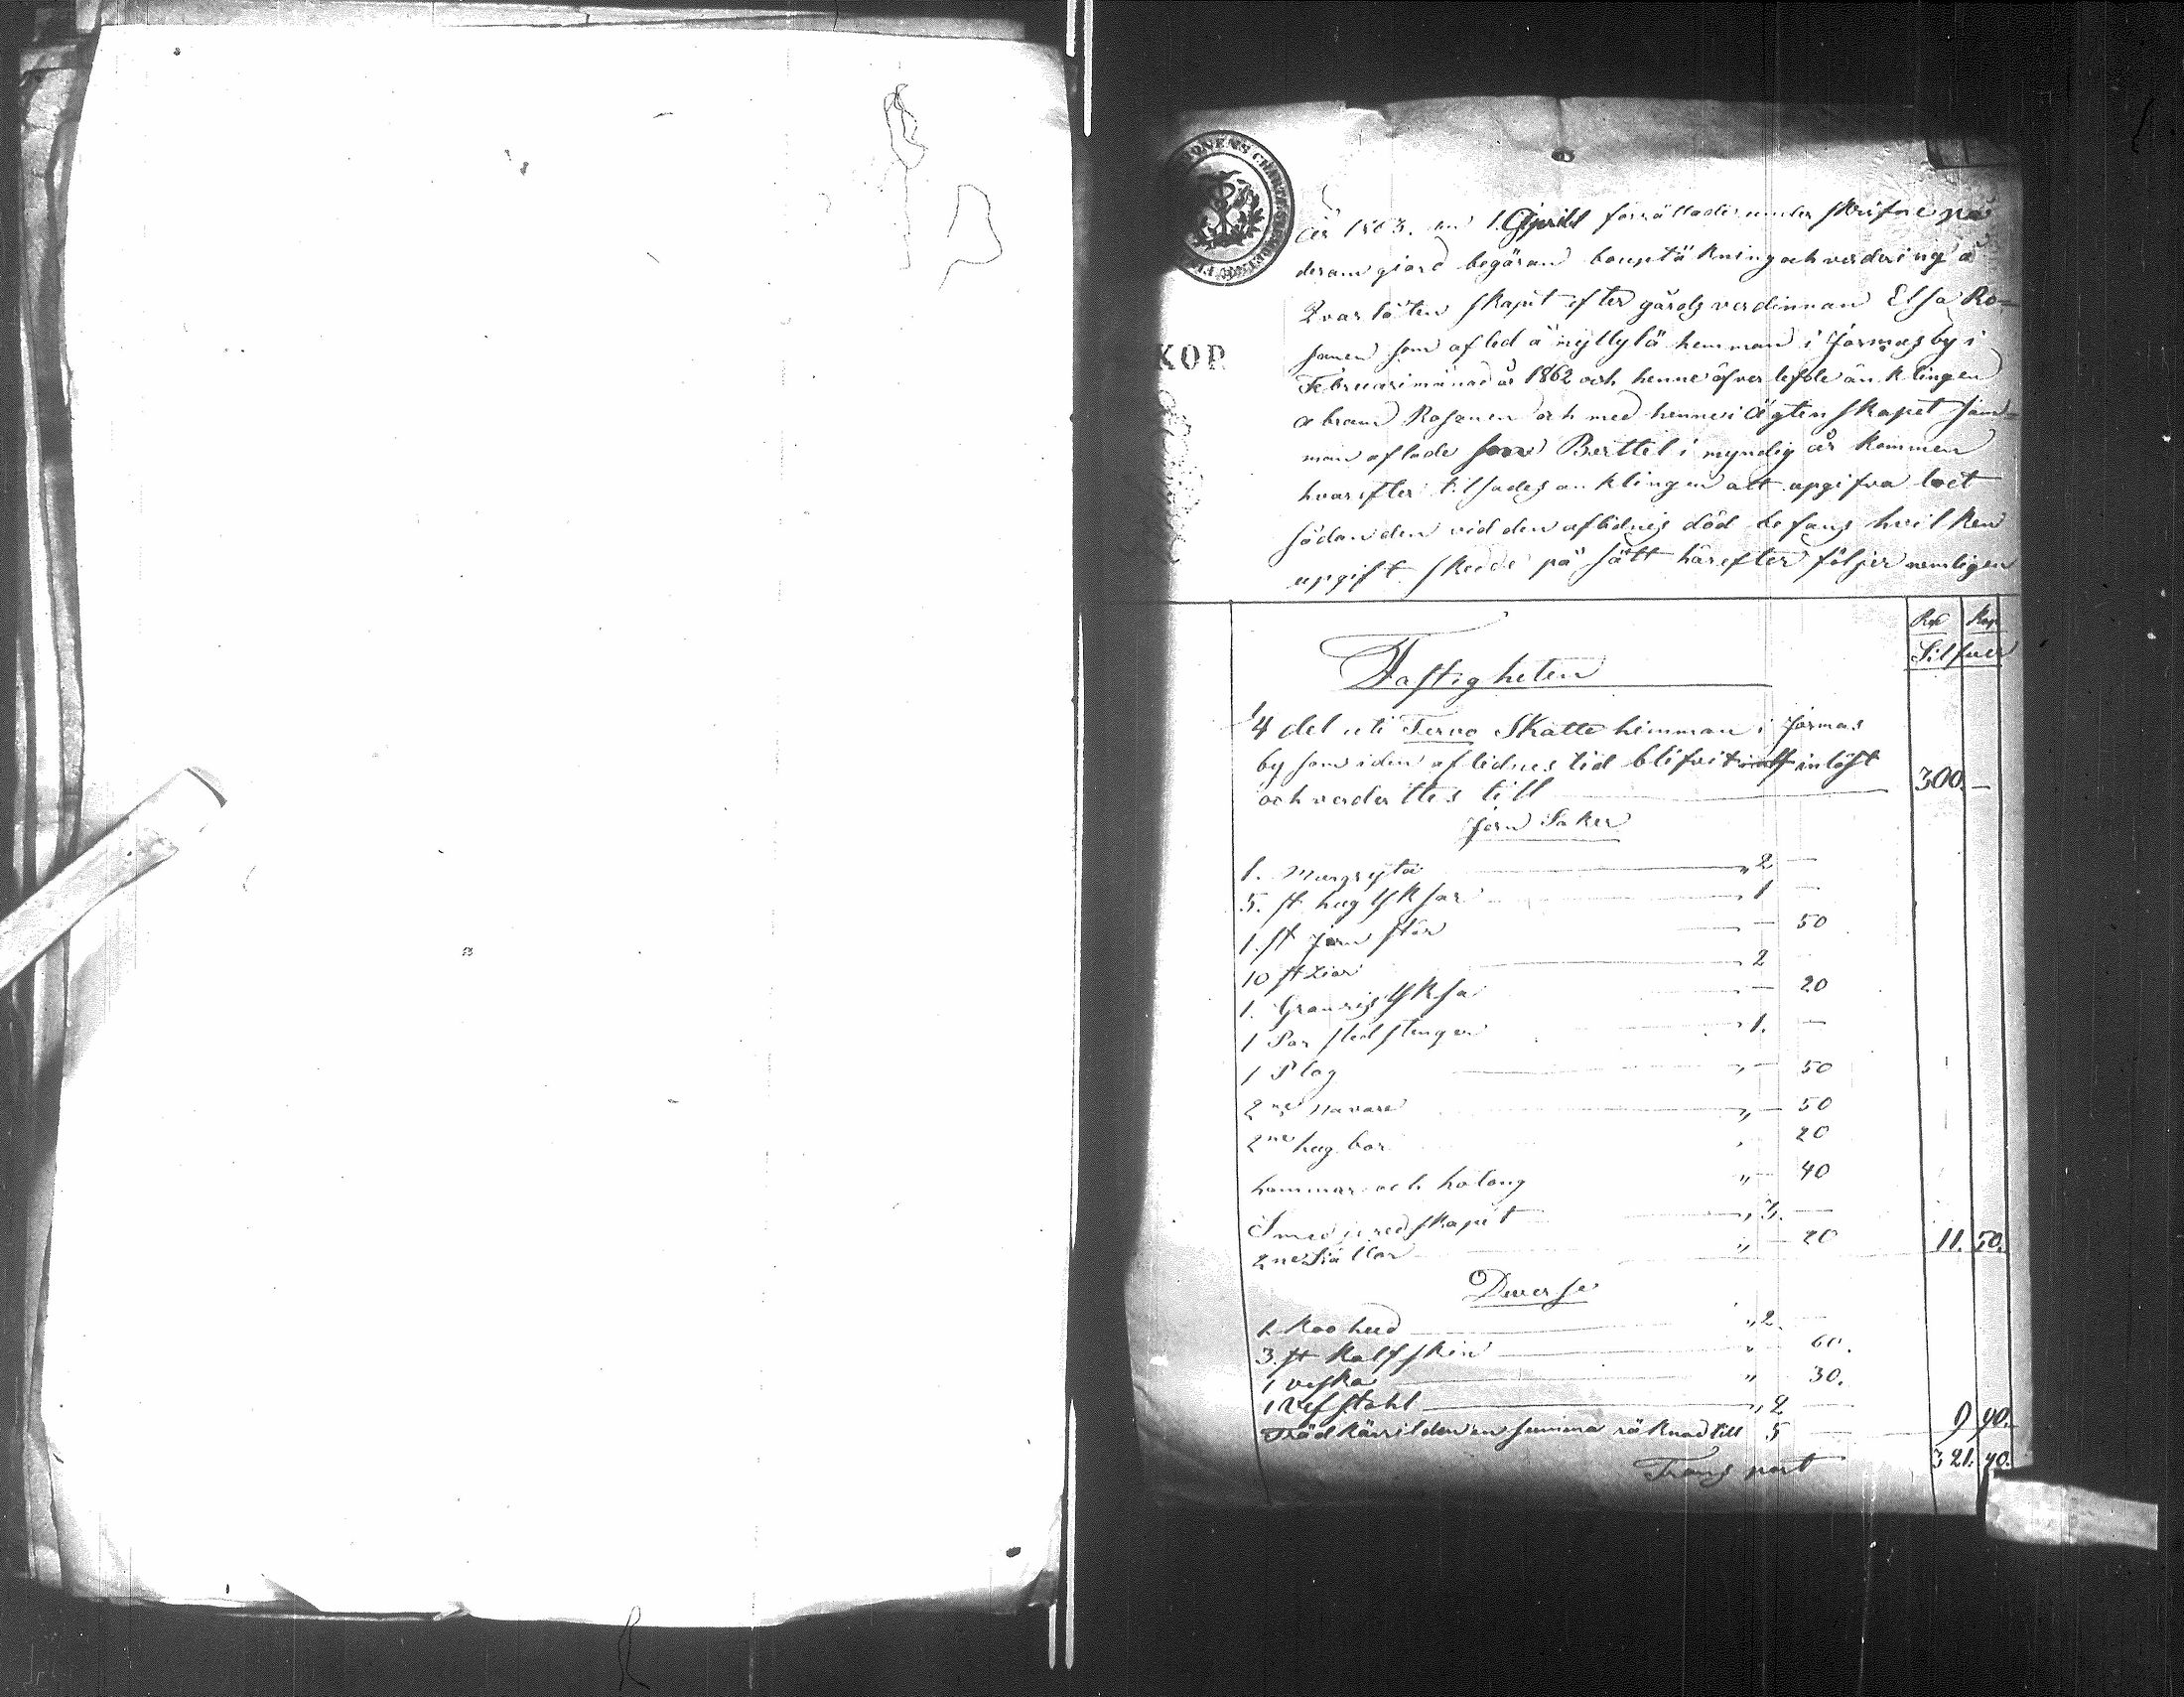 KOP.
år 1863. den 1. Aprill förrättades under skrifne på
deram giord begäran bouptäkning och verdering å
Qvarlåtenskapet efter gårdsverdinnan Elsa Ro-
sanen som afled å nyllylä hemman i Jormasby i
Februari månad år 1862 och henne öfverlefde änklingen
abram Rosanen och med henne i ägtenskapet sam-
man aflade son Berttel i myndig år kommen
hvarefter tilsades anklingen att upgifva boet
sådan den vid den aflidnes död befans hvilken
upgift skedde på sätt härefter följer nemligen
Rub Kop
Silfver
Fastigheten
1/4 del uti Tervo Skatte hemman i Jormas
by som i den aflidnes tid blifvit inlöst
och verdertes till 300. —
Jern Saker
1. Murgryta " 2 —
5. st hug yksar " 1 —
1. st Jern stör — 50
10 st Liar " 2
1. Granris yksa — 20
1 Par sled stenger " 1. —
1 Plog " — 50
2ne navare " — 50
2ne hug bor " 20
hammar och hotang " — 40
Smed jeredskapet " 3. —
2ne Siällar " — 20 11. 50.
Diverse
1 Koo hud " 2. —
3. st Kalfskin " 60.
1 veska " 30.
1 Vefstohl " 2 —
Trädkärrilden en summa räknad till 5 — 9 90.
Transport 321. 40.